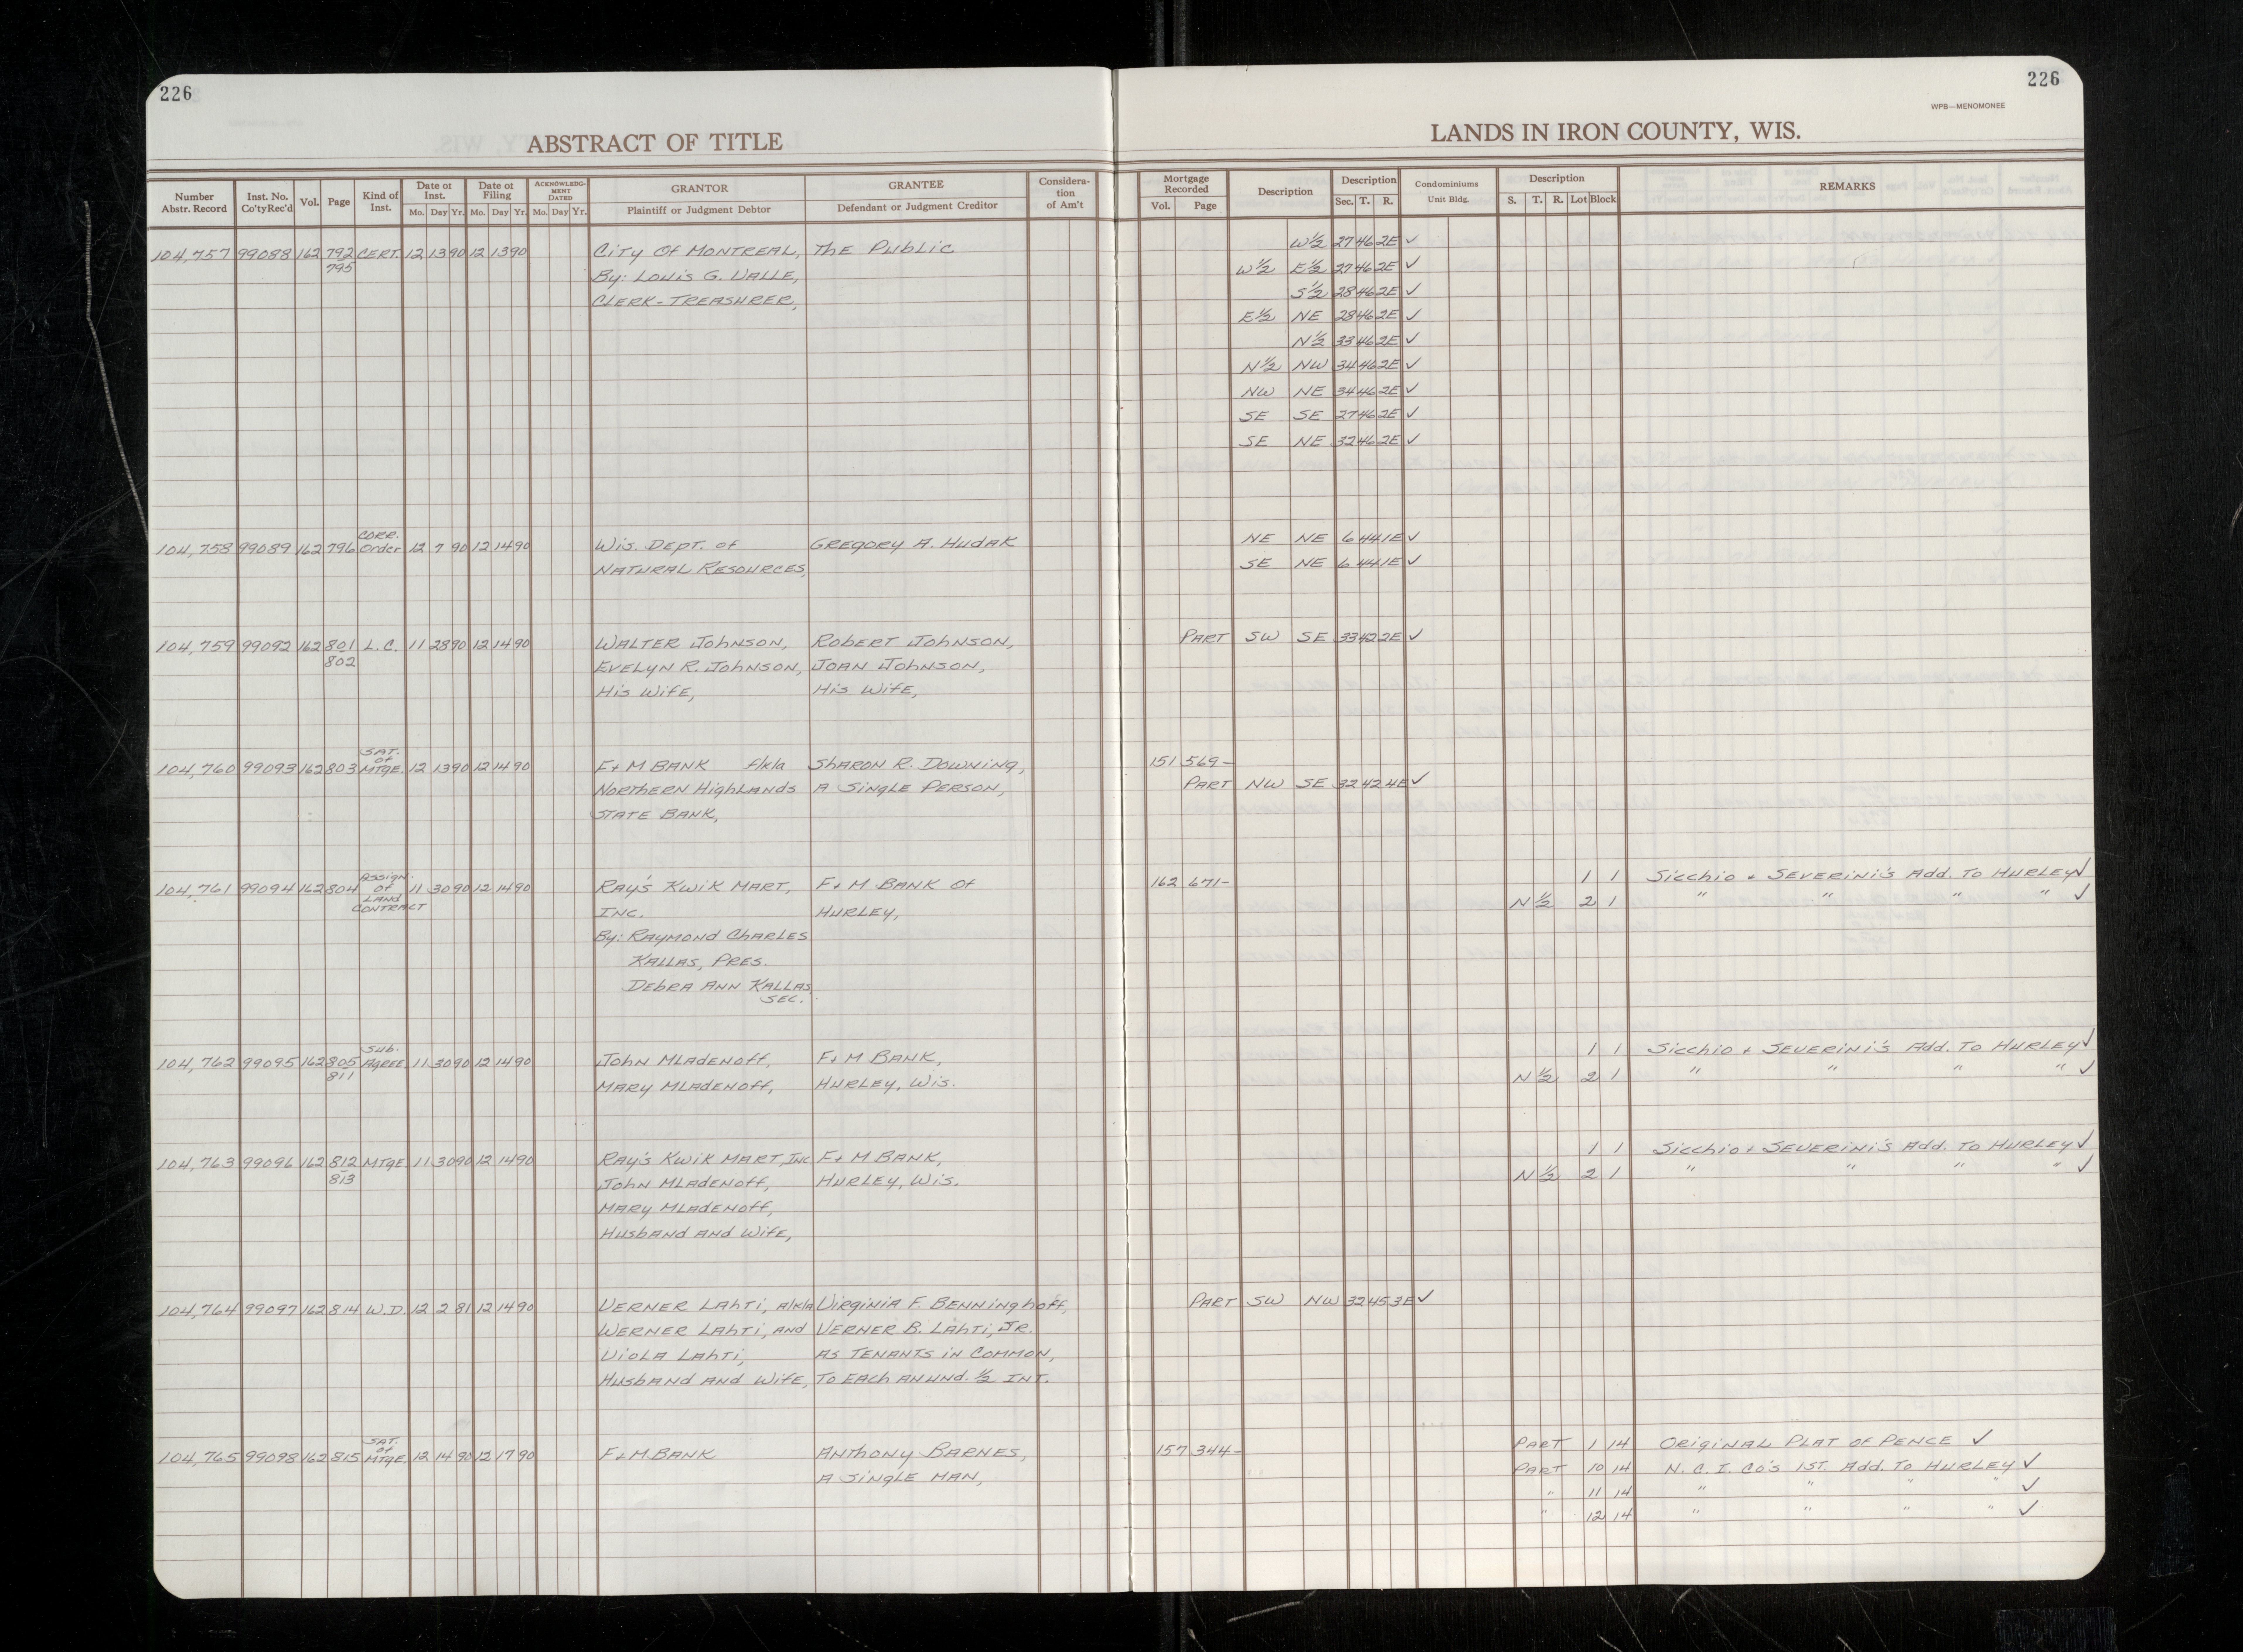 226
226
WPB—MENOMONEE
ABSTRACT OF TITLE
LANDS IN IRON COUNTY, WIS.
Number Abstr. Record | Inst. No. Co'tyRec'd | Vol. | Page | Kind of Inst. | Date of Inst. Mo. Day Yr. | Date of Filing Mo. Day Yr. | ACKNOWLEDGMENT DATED Mo. Day Yr. | GRANTOR Plaintiff or Judgment Debtor | GRANTEE Defendant or Judgment Creditor | Consideration of Am't | Mortgage Recorded Vol. Page | Description | Description Sec. T. R. | Condominiums Unit Bldg. | Description S. T. R. Lot Block | REMARKS
104,757 99088 162 792 CERT. 12 13 90 12 13 90 City Of Montreal, The Public W½ 27 46 2E ✓
795 By: Louis G. Valle, W½ E½ 27 46 2E ✓
Clerk-Treasurer, S½ 28 46 2E ✓
E½ NE 28 46 2E ✓
N½ 33 46 2E ✓
N½ NW 34 46 2E ✓
NW NE 34 46 2E ✓
SE SE 27 46 2E ✓
SE NE 32 46 2E ✓
Corr.
104,758 99089 162 796 Order 12 7 90 12 14 90 Wis. Dept. of Gregory A. Hudak NE NE 6 44 1E ✓
Natural Resources, SE NE 6 44 1E ✓
104,759 99092 162 801 L.C. 11 28 90 12 14 90 Walter Johnson, Robert Johnson, Part SW SE 33 42 2E ✓
802 Evelyn R. Johnson, Joan Johnson,
His Wife, His Wife,
Sat. of
104,760 99093 162 803 Mtge. 12 13 90 12 14 90 F+M Bank f/k/a Sharon R. Downing, 151 569-
Northern Highlands A Single Person, Part NW SE 32 42 4E ✓
State Bank,
Assign.
104,761 99094 162 804 of 11 30 90 12 14 90 Ray's Kwik Mart, F+M Bank Of 162 671- 1 1 Sicchio + Severini's Add. To Hurley ✓
Land Contract Inc. Hurley, N ½ 2 1 " " " " ✓
By: Raymond Charles
Kallas, Pres.
Debra Ann Kallas
Sec.
Sub.
104,762 99095 162 805 Agree. 11 30 90 12 14 90 John Mladenoff, F+M Bank, 1 1 Sicchio + Severini's Add. To Hurley ✓
811 Mary Mladenoff, Hurley, Wis. N ½ 2 1 " " " " ✓
104,763 99096 162 812 Mtge 11 30 90 12 14 90 Ray's Kwik Mart, Inc F+M Bank, 1 1 Sicchio + Severini's Add. To Hurley ✓
813 John Mladenoff, Hurley, Wis. N ½ 2 1 " " " " ✓
Mary Mladenoff,
Husband and Wife,
104,764 99097 162 814 W.D. 12 2 81 12 14 90 Verner Lahti, a/k/a Virginia F. Benninghoff, Part SW NW 32 45 3E ✓
Werner Lahti, and Verner B. Lahti, Jr.
Viola Lahti, As Tenants in Common,
Husband and Wife, To Each an und. ½ Int.
Sat. of
104,765 99098 162 815 Mtge. 12 14 90 12 17 90 F+M Bank Anthony Barnes, 157 344- Part 1 14 Original Plat of Pence ✓
A Single Man, Part 10 14 N.C.I. Co's 1st. Add. To Hurley ✓
" 11 14 " " " " ✓
" 12 14 " " " " ✓